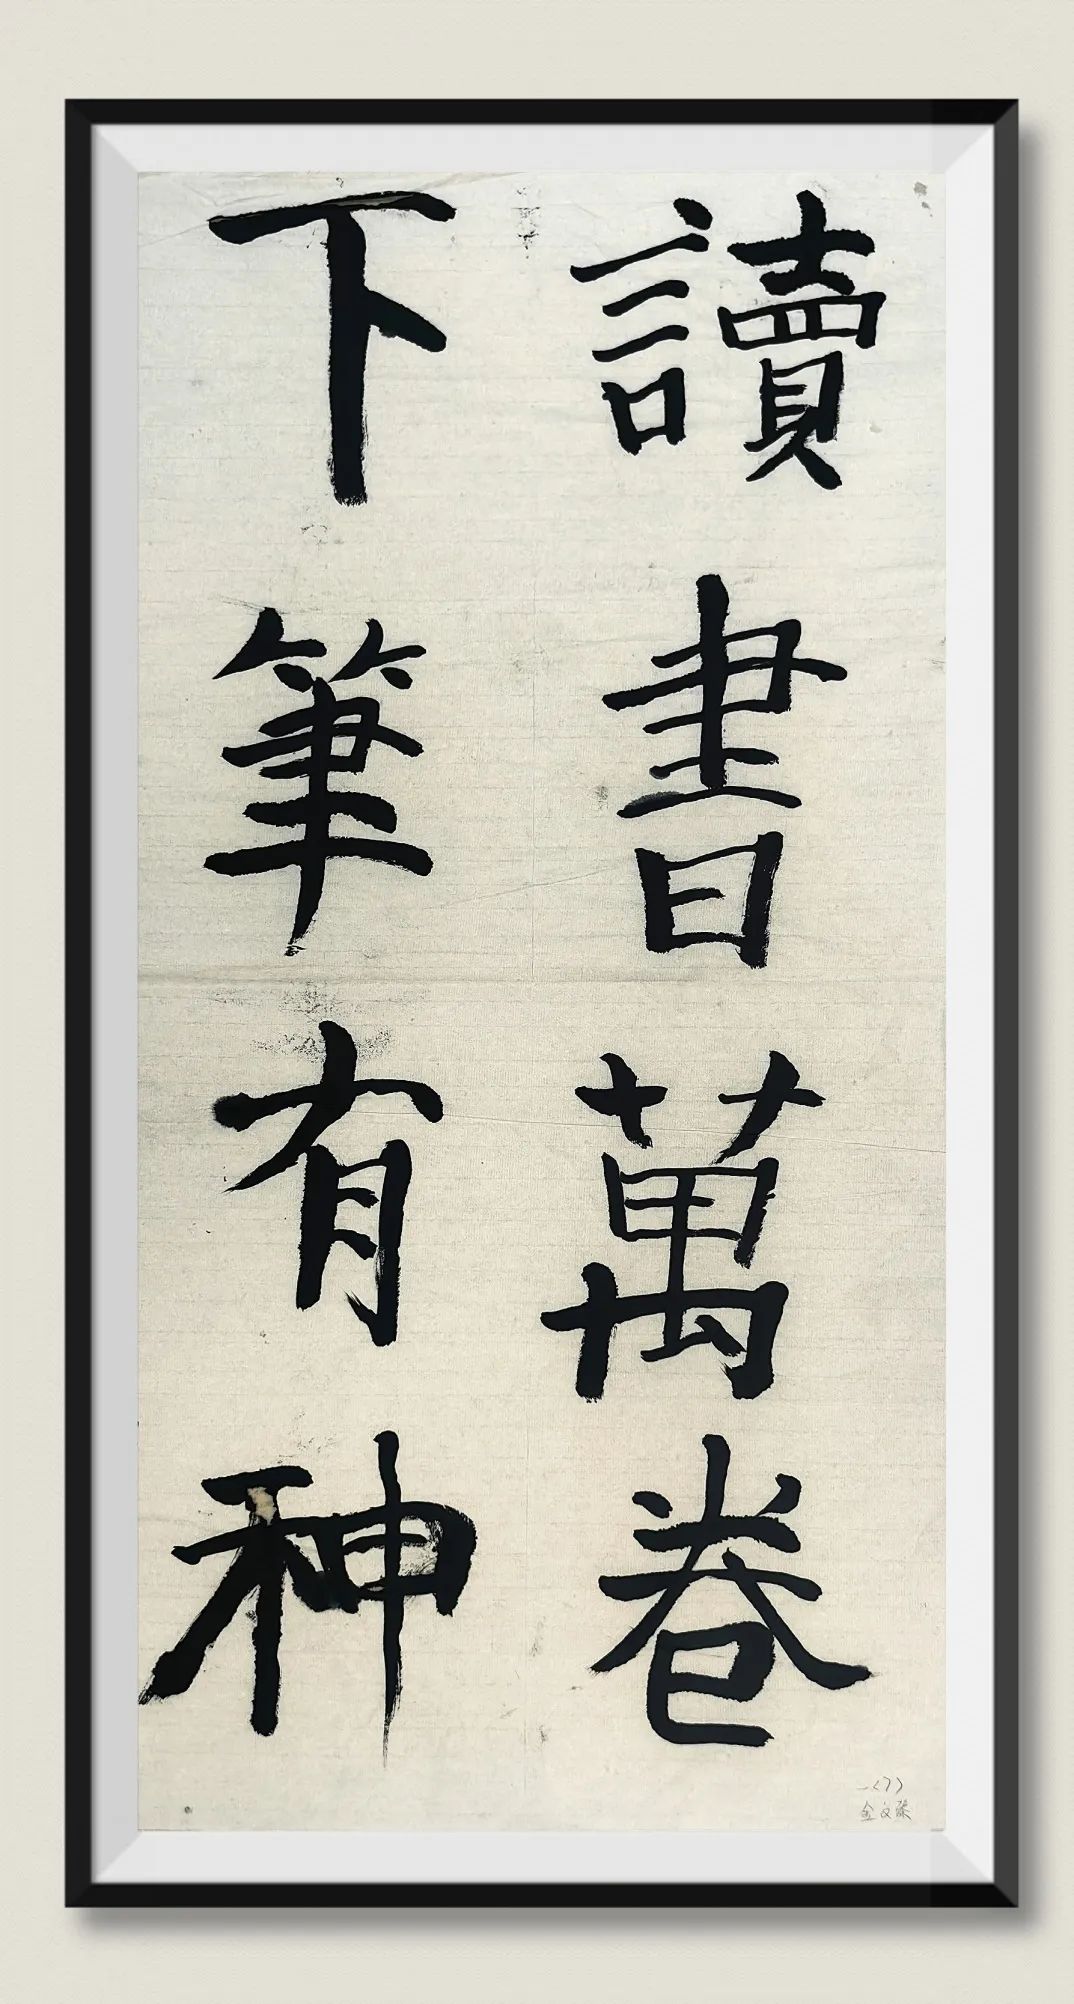 讀書萬卷
下筆有神
一(7)